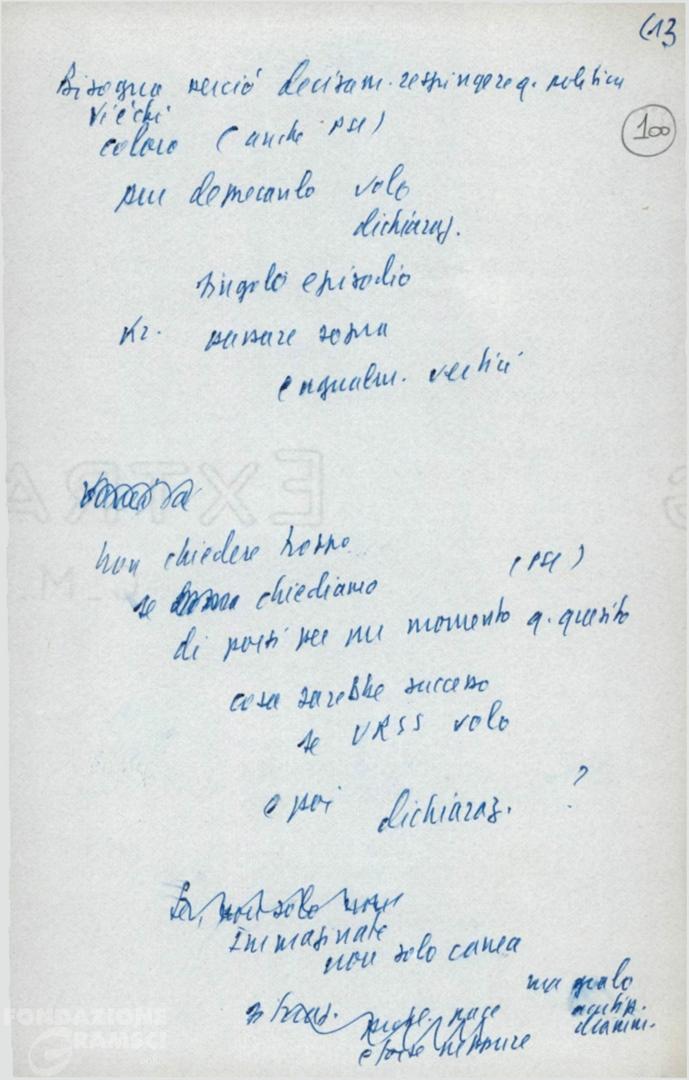 (13
100
Bisogna perciò decisam. respingere q. politica
Vi è chi
coloro (anche PSI)
pur deprecando volo
dichiaraz.
singolo episodio
Kr. passare sopra
e ugualm. vertici
non chiedere troppo
se chiediamo (PSI)
di porsi per un momento q. quesito
cosa sarebbe successo
se URSS volo
e poi dichiaraz. ?
Se, non solo
Immaginate
non solo canea
ma quale
situaz.
pace
e forse neppure
FONDAZIONE
GRAMSCI